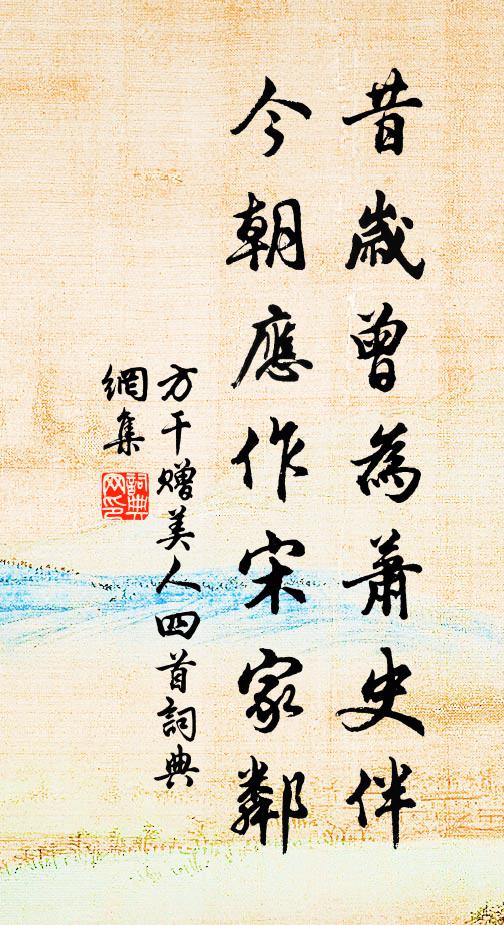 昔歲曾為蕭史伴
今朝應作宋家鄰
方干贈美人四首詞典
網集
詞典
网印